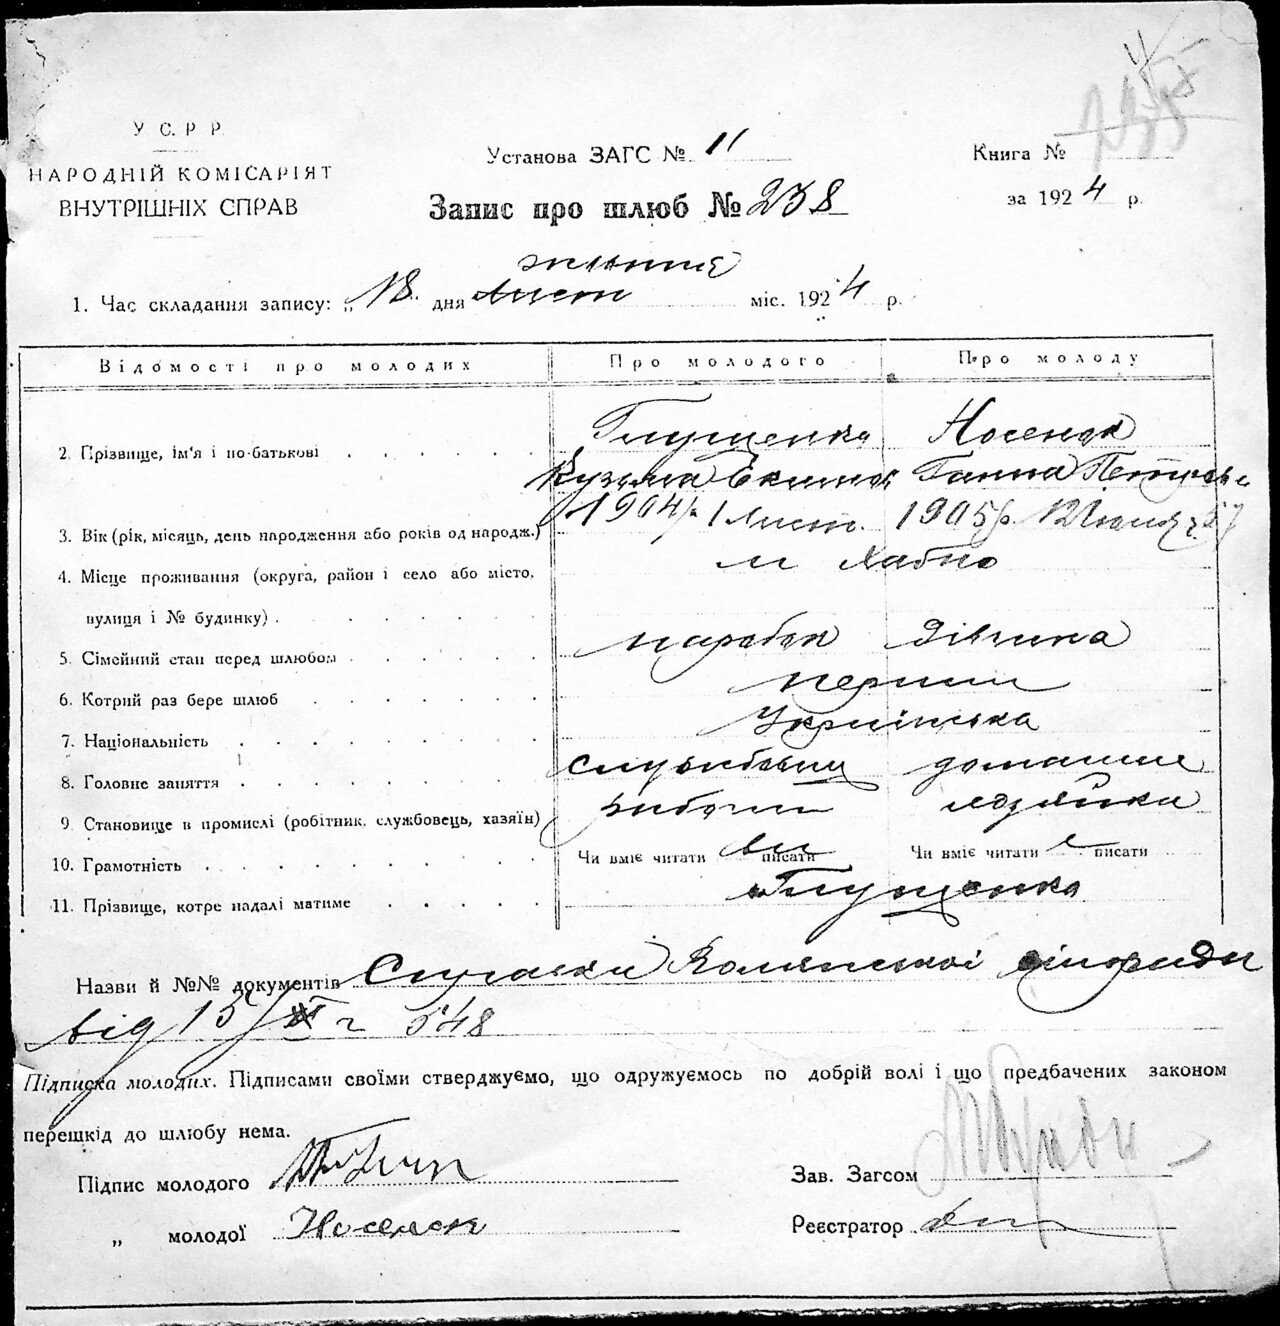 У С. Р Р
НАРОДНІЙ КОМІСАРІЯТ
ВНУТРІШНІХ СПРАВ
Установа ЗАГС № 11
Запис про шлюб № 238
Книга №
за 1924 р.
1. Час складання запису: „18 дня Лист міс. 1924 р.
Відомості про молодих Про молодого Про молоду
2. Прізвище, ім'я і по-батькові Глущенко Носенок
Кузьма Ганна
3. Вік (рік, місяць, день народження або років од народж.) 1904 р. 1 Лист. 1905 р. 12
4. Місце проживання (округа, район і село або місто, м Хабно
вулиця і № будинку)
5. Сімейний стан перед шлюбом парубок дівчина
6. Котрий раз бере шлюб перший
7. Національність Українська
8. Головне заняття домашне
9. Становище в промислі (робітник, службовець, хазяїн)
10. Грамотність Чи вміє читати писати Чи вміє читати писати
11. Прізвище, котре надалі матиме Глущенко
Назви й №№ документів
від 15 548
Підписка молодих. Підписами своїми стверджуємо, що одружуємось по добрій волі і що предбачених законом
перешкід до шлюбу нема.
Підпис молодого
„ молодої Носенок
Зав. Загсом
Реєстратор